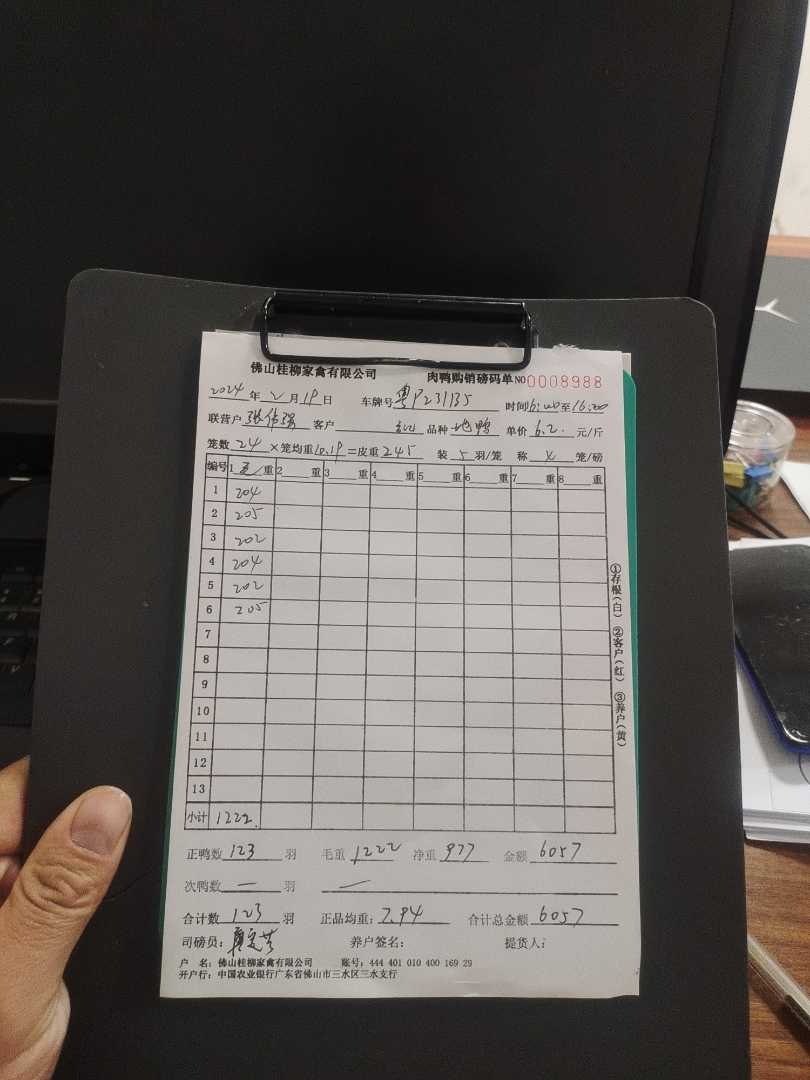 佛山桂柳家禽有限公司 肉鸭购销磅码单 NO 0008988
2024 年 2 月 19 日 车牌号 粤P231B5 时间 16:00 至 16:20
联营户 张伟强 客户 品种 地鸭 单价 6.2 元/斤
笼数 24 ×笼均重 10.19 =皮重 245 装 5 羽/笼 称 4 笼/磅
编号 1 重 2 重 3 重 4 重 5 重 6 重 7 重 8 重
1 204
2 205
3 202
4 204
5 202
6 205
7
8
9
10
11
12
13
小计 1222.
正鸭数 123 羽 毛重 1222 净重 977 金额 6057
次鸭数 — 羽 —
合计数 123 羽 正品均重: 7.94 合计总金额 6057
司磅员: 养户签名: 提货人:
户 名: 佛山桂柳家禽有限公司 账号: 444 401 010 400 169 29
开户行: 中国农业银行广东省佛山市三水区三水支行
①存根(白) ②客户(红) ③养户(黄)